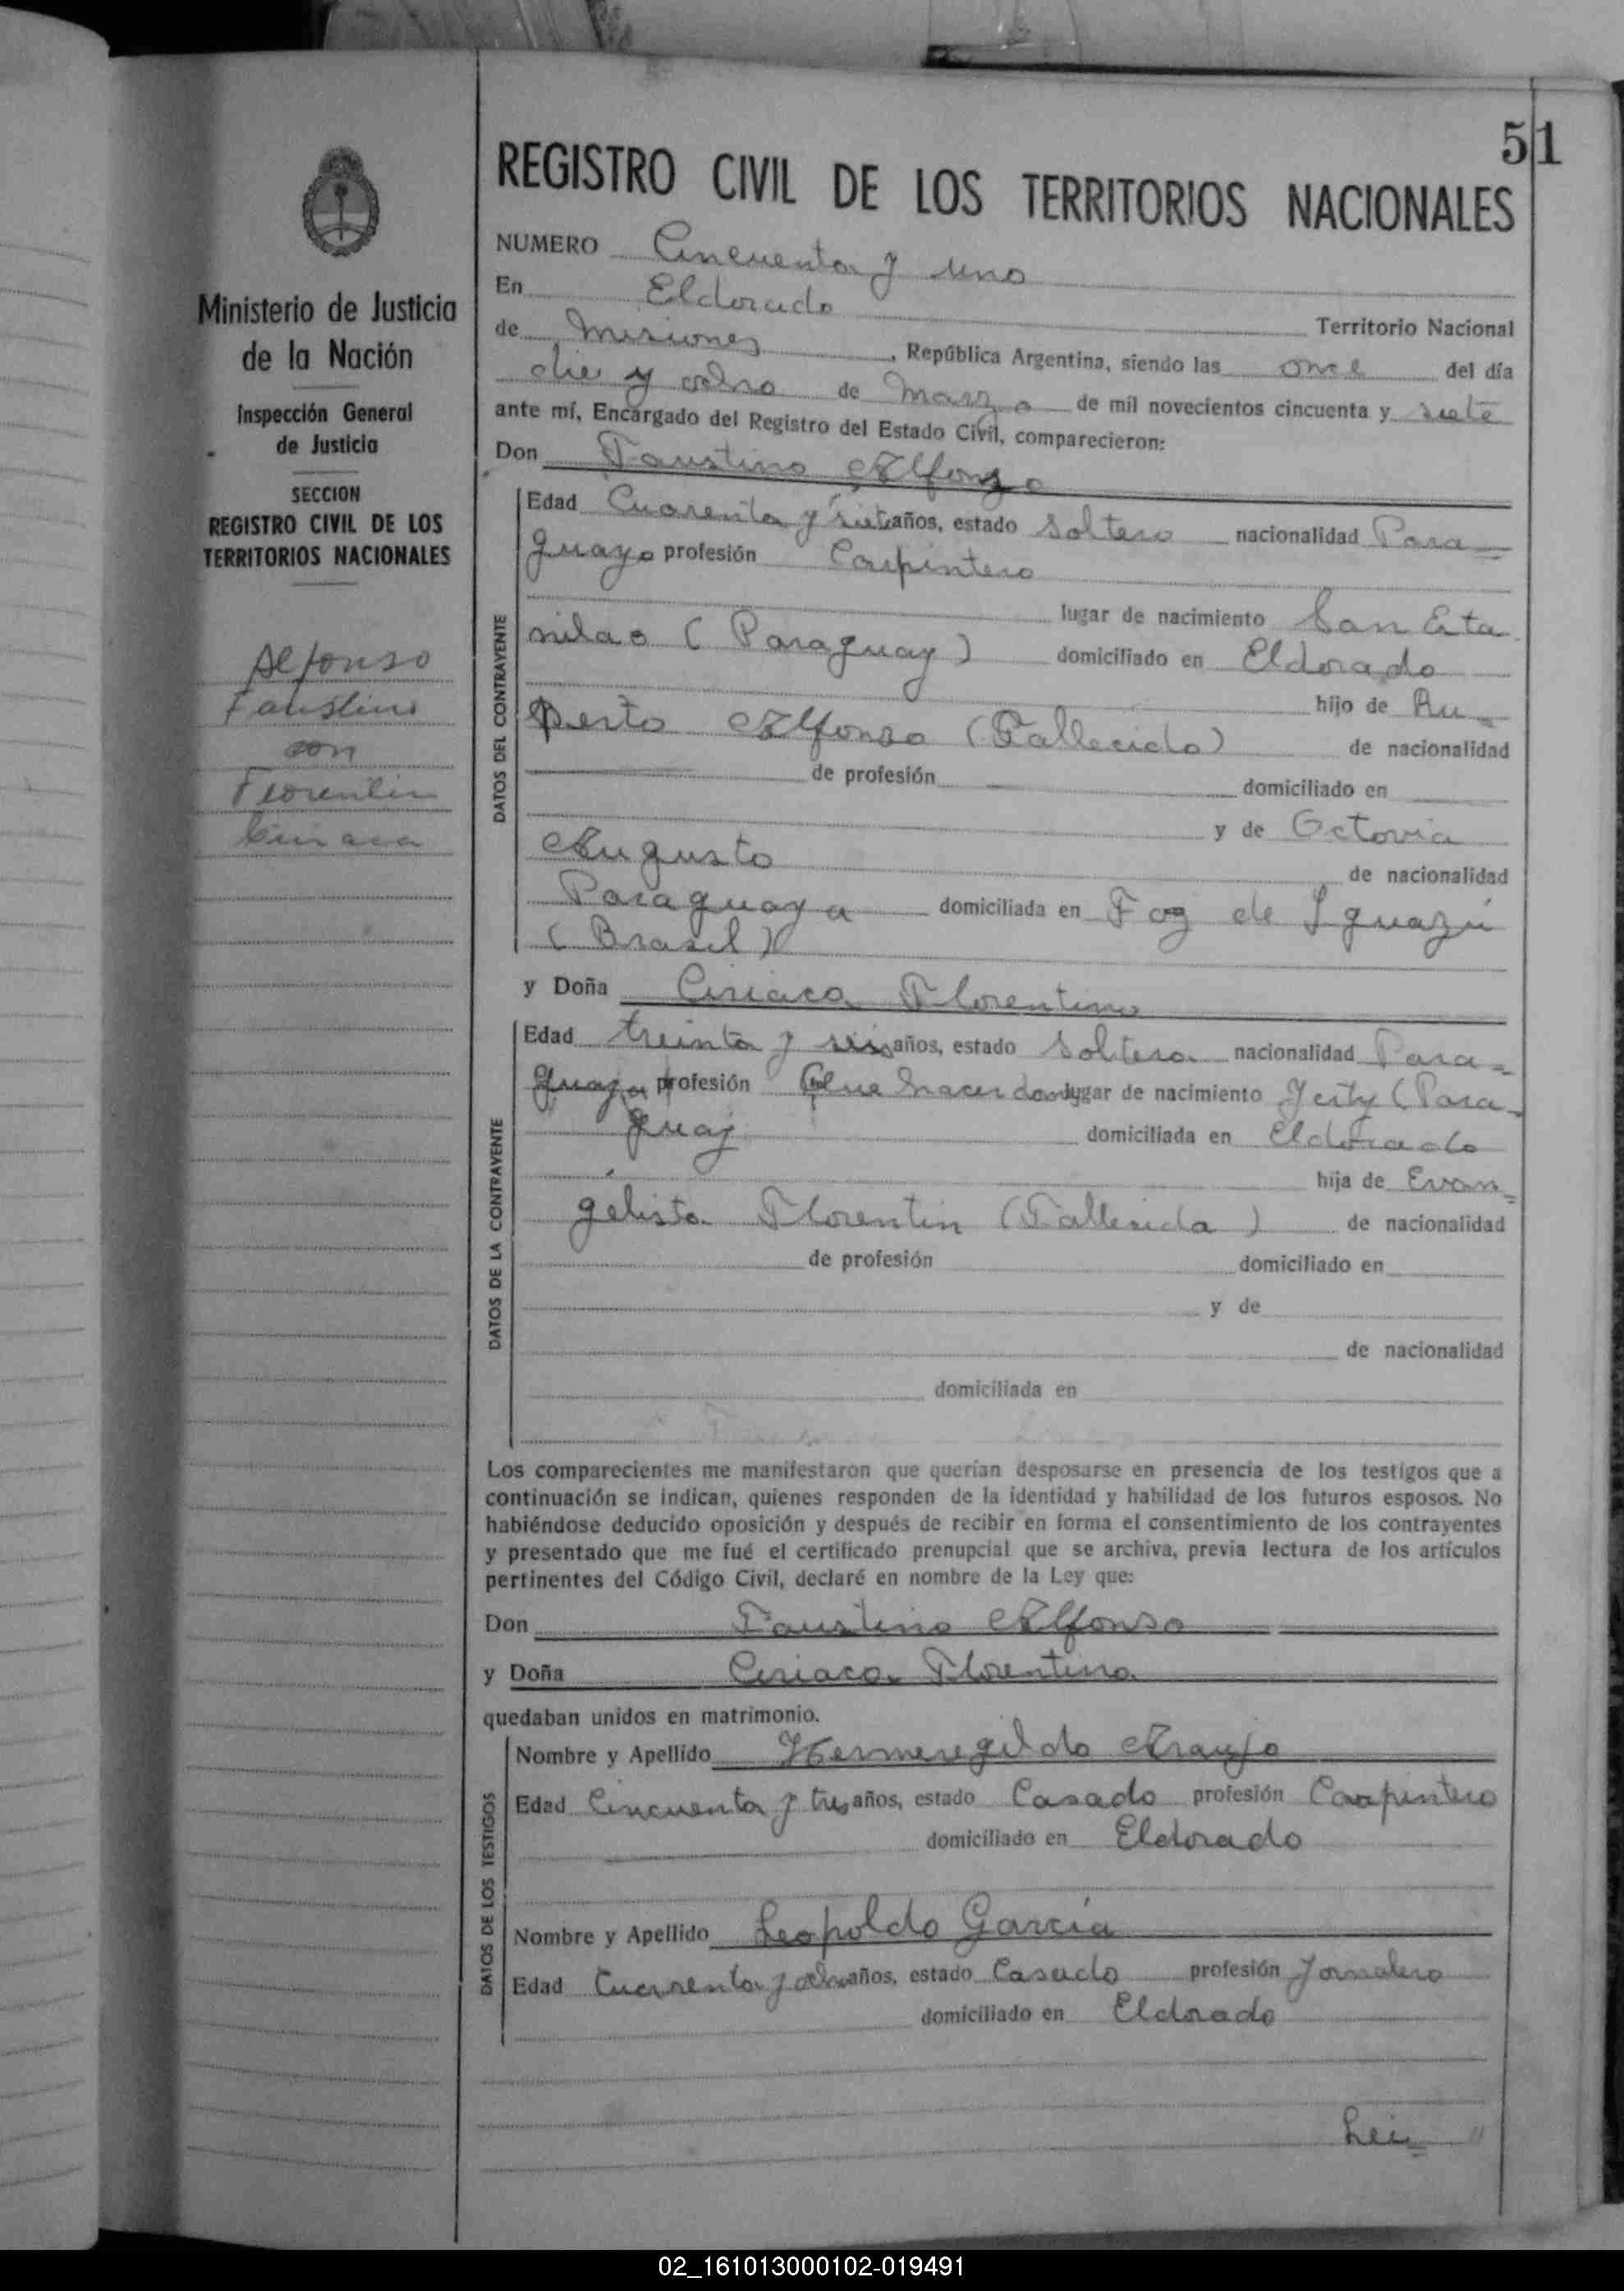 51
REGISTRO CIVIL DE LOS TERRITORIOS NACIONALES
Ministerio de Justicia
de la Nación
Inspección General
de Justicia
SECCION
REGISTRO CIVIL DE LOS
TERRITORIOS NACIONALES
Alfonso
Faustino
con
Florentin
Ciriaca
NUMERO Cincuenta y uno
En Eldorado Territorio Nacional
de Misiones, República Argentina, siendo las once del día
die y ocho de Marzo de mil novecientos cincuenta y siete
ante mí, Encargado del Registro del Estado Civil, comparecieron:
Don Faustino Alfonzo
DATOS DEL CONTRAYENTE
Edad Cuarenta y siete años, estado Soltero nacionalidad Para=
guayo profesión Carpintero
lugar de nacimiento San Esta
nilao (Paraguay) domiciliado en Eldorado
hijo de Ru=
perto Alfonso (Fallecido) de nacionalidad
de profesión domiciliado en
y de Octovia
Augusto de nacionalidad
Paraguaya domiciliada en Foz de Iguazú
(Brasil)
y Doña Ciriaca Florentino
DATOS DE LA CONTRAYENTE
Edad treinta y seis años, estado Soltera nacionalidad Para=
guaya profesión Que hacer lugar de nacimiento Yuty (Para=
guay domiciliada en Eldorado
hija de Evan=
gélista Florentin (Fallecida) de nacionalidad
de profesión domiciliado en
y de
de nacionalidad
domiciliada en
Los comparecientes me manifestaron que querían desposarse en presencia de los testigos que a
continuación se indican, quienes responden de la identidad y habilidad de los futuros esposos. No
habiéndose deducido oposición y después de recibir en forma el consentimiento de los contrayentes
y presentado que me fué el certificado prenupcial que se archiva, previa lectura de los artículos
pertinentes del Código Civil, declaré en nombre de la Ley que:
Don Faustino Alfonso
y Doña Ciriaca Florentina
quedaban unidos en matrimonio.
DATOS DE LOS TESTIGOS
Nombre y Apellido Hermeregildo Araujo
Edad Cincuenta y tres años, estado Casado profesión Carpintero
domiciliado en Eldorado
Nombre y Apellido Leopoldo García
Edad Cuarenta y ocho años, estado Casado profesión Jornalero
domiciliado en Eldorado
02_161013000102-019491